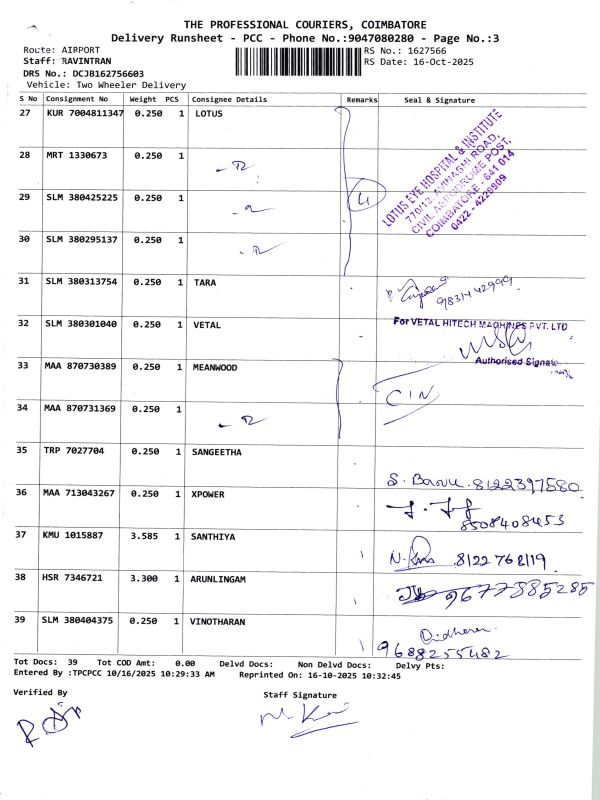 THE PROFESSIONAL COURIERS, COIMBATORE
Delivery Runsheet - PCC - Phone No.:9047080280 - Page No.:3
Route: AIRPORT RS No.: 1627566
Staff: RAVINTRAN RS Date: 16-Oct-2025
DRS No.: DCJB162756603
Vehicle: Two Wheeler Delivery
S No Consignment No Weight PCS Consignee Details Remarks Seal & Signature
27 KUR 7004811347 0.250 1 LOTUS
28 MRT 1330673 0.250 1
29 SLM 380425225 0.250 1
30 SLM 380295137 0.250 1
4
LOTUS EYE HOSPITAL & INSTITUTE
770/12, AVINASHI ROAD,
CIVIL AERODROME POST,
COIMBATORE - 641 014
0422 - 4229909
31 SLM 380313754 0.250 1 TARA
32 SLM 380301040 0.250 1 VETAL For VETAL HITECH MACHINES PVT. LTD
Authorised Signato
33 MAA 870730389 0.250 1 MEANWOOD
CIN
34 MAA 870731369 0.250 1
35 TRP 7027704 0.250 1 SANGEETHA
8122397580
36 MAA 713043267 0.250 1 XPOWER
8508408453
37 KMU 1015887 3.585 1 SANTHIYA
38 HSR 7346721 3.300 1 ARUNLINGAM
9677885285
39 SLM 380404375 0.250 1 VINOTHARAN
9688255482
Tot Docs: 39 Tot COD Amt: 0.00 Delvd Docs: Non Delvd Docs: Delvy Pts:
Entered By :TPCPCC 10/16/2025 10:29:33 AM Reprinted On: 16-10-2025 10:32:45
Verified By Staff Signature